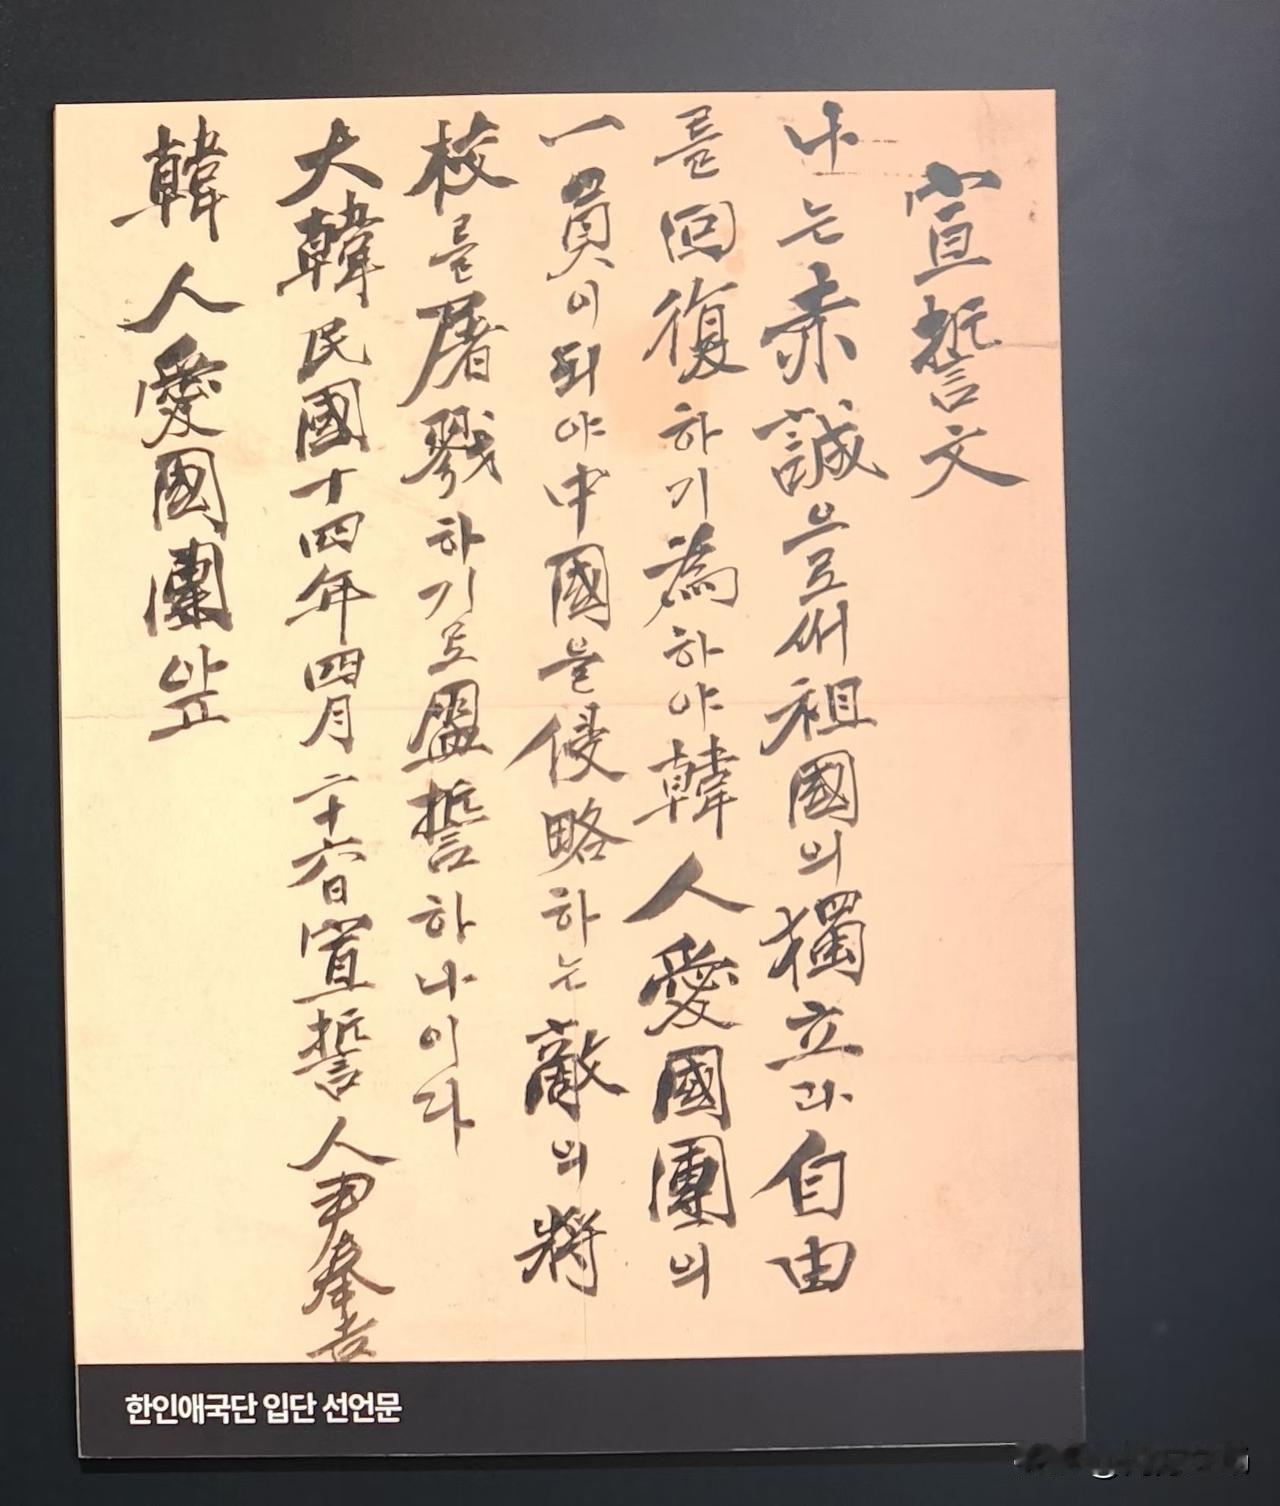 宣誓文
나는赤誠으로써祖國의獨立과自由
를回復하기爲하야韓人愛國團의
一員이되야中國을侵略하는敵의將
校를屠戮하기로盟誓하나이다
大韓民國十四年四月二十六日宣誓人尹奉吉
韓人愛國團앞
한인애국단 입단 선언문